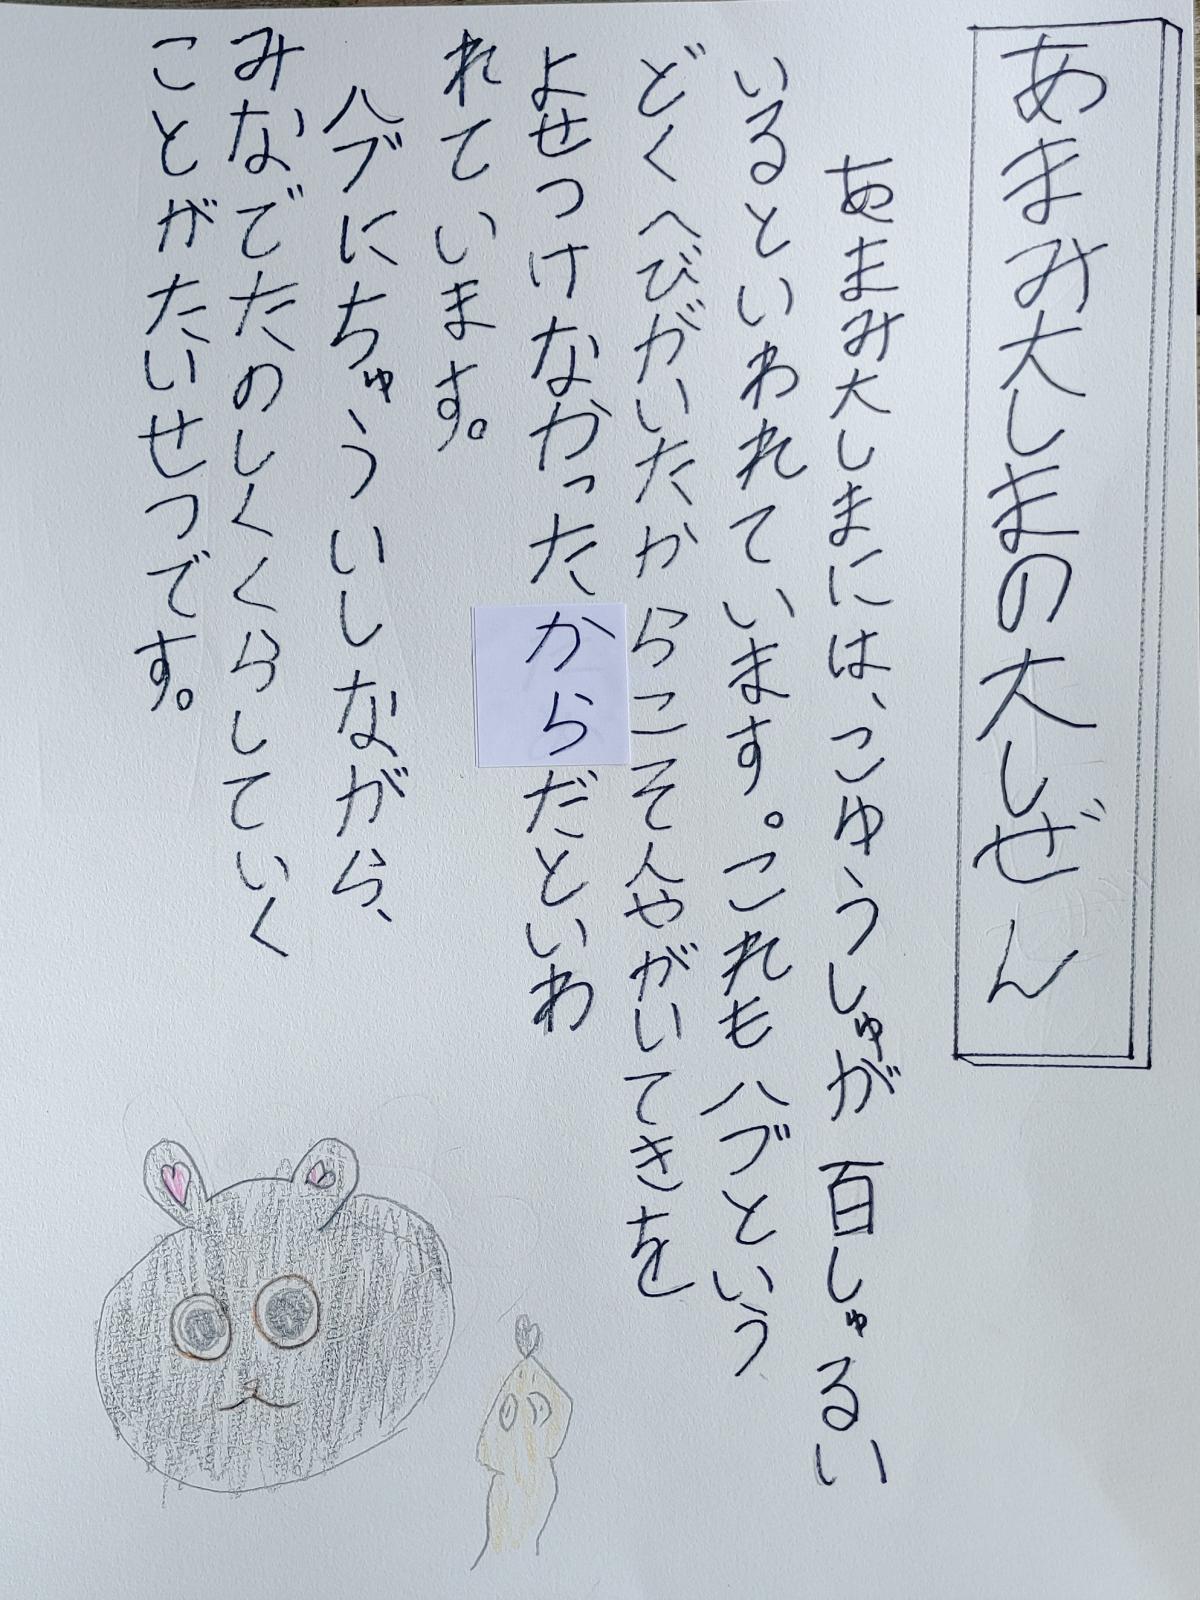 あまみ大しまの大しぜん
あまみ大しまには、こゆうしゅが百しゅるい
いるといわれています。これもハブという
どくへびがいたからこそ人やがいてきを
よせつけなかったからだといわ
れています。
ハブにちゅういしながら、
みなでたのしくくらしていく
ことがたいせつです。